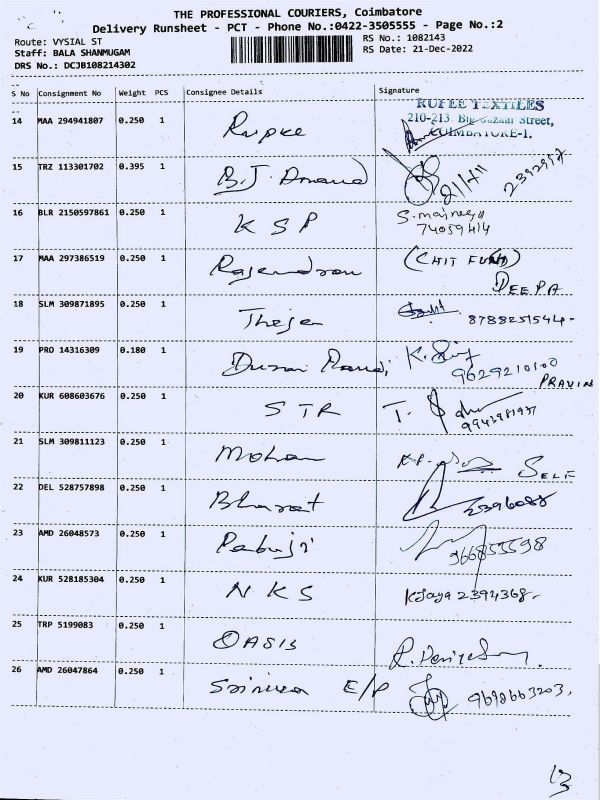 THE PROFESSIONAL COURIERS, Coimbatore
Delivery Runsheet - PCT - Phone No.:0422-3505555 - Page No.:2
Route: VYSIAL ST
RS No.: 1082143
Staff: BALA SHANMUGAM
RS Date: 21-Dec-2022
DRS No.: DCJB108214302
S No Consignment No Weight PCS Consignee Details Signature
RUPEE TEXTILES
14 MAA 294941807 0.250 1 Rupee 210-213 Big Bazaar Street,
COIMBATORE-1.
15 TRZ 113301702 0.395 1 B.J. Anand 2392957
16 BLR 2150597861 0.250 1 KSP
17 MAA 297386519 0.250 1 Rajendran (CHIT FUND)
DEEPA
18 SLM 309871895 0.250 1 8788251544-
19 PRO 14316309 0.180 1 Durai 9629210100
PRAVIN
20 KUR 608603676 0.250 1 STR T.
9943981937
21 SLM 309811123 0.250 1 Mohan SELF
22 DEL 528757898 0.250 1 Bharat 2396088
23 AMD 26048573 0.250 1 Pabuji
24 KUR 528185304 0.250 1 NKS K Jaya 2394368.
25 TRP 5199083 0.250 1 OASIS
26 AMD 26047864 0.250 1 E/P 9698663203.
13